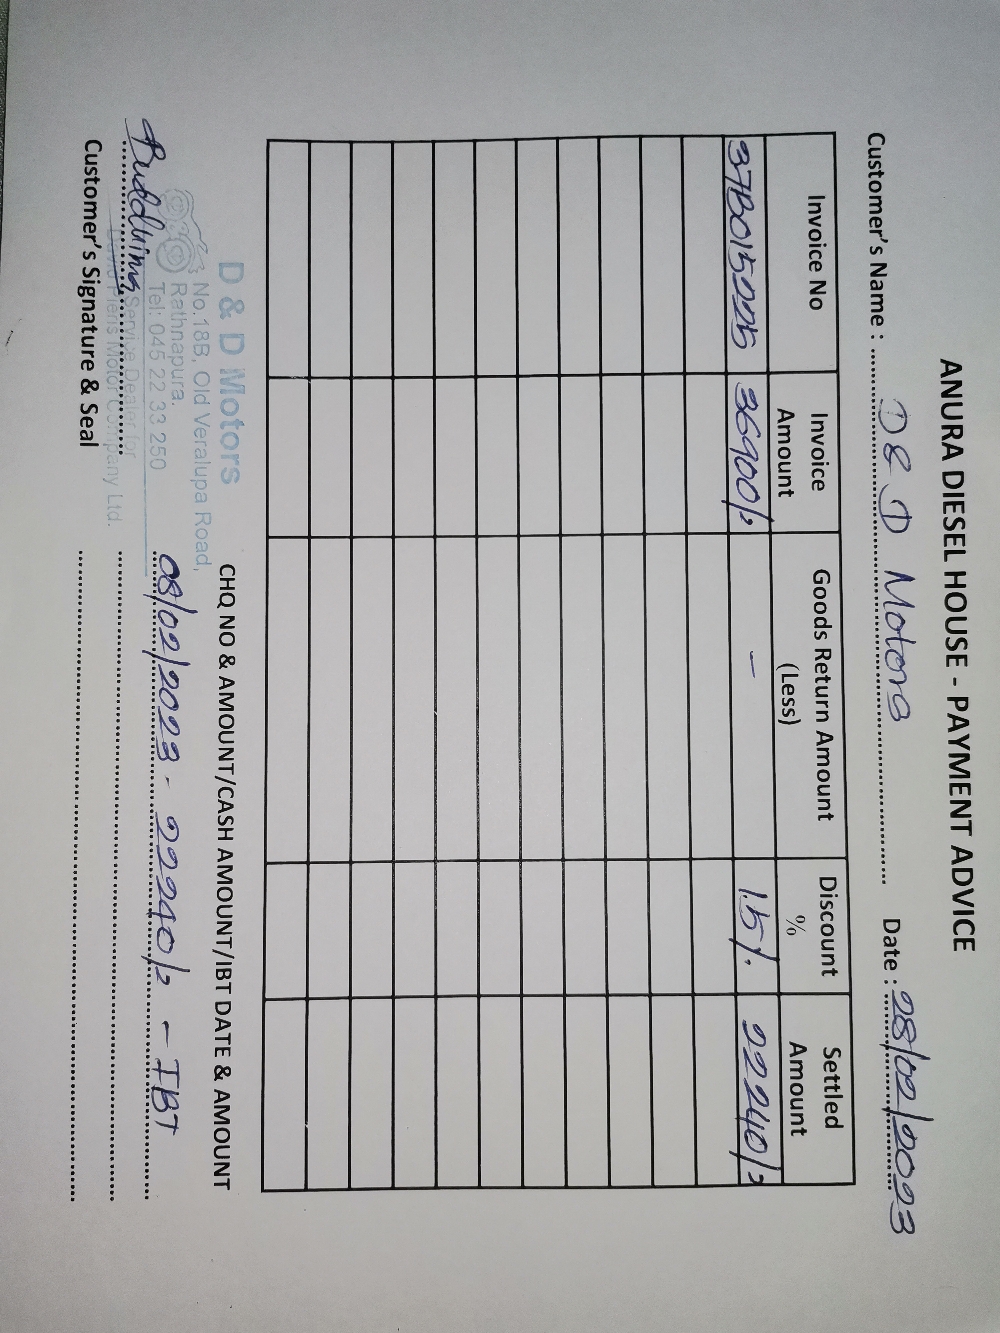 ANURA DIESEL HOUSE - PAYMENT ADVICE
Customer's Name : D & D Motors Date : 28/02/2023
Invoice No Invoice Amount Goods Return Amount (Less) Discount % Settled Amount
37B015225 36900/= - 15%. 22240/=
D & D Motors
No.18B, Old Veralupa Road,
Rathnapura.
Tel: 045 22 33 250
Service Dealer for
Pieris Motor Company Ltd.
Customer's Signature & Seal
CHQ NO & AMOUNT/CASH AMOUNT/IBT DATE & AMOUNT
08/02/2023 - 22240/= - IBT